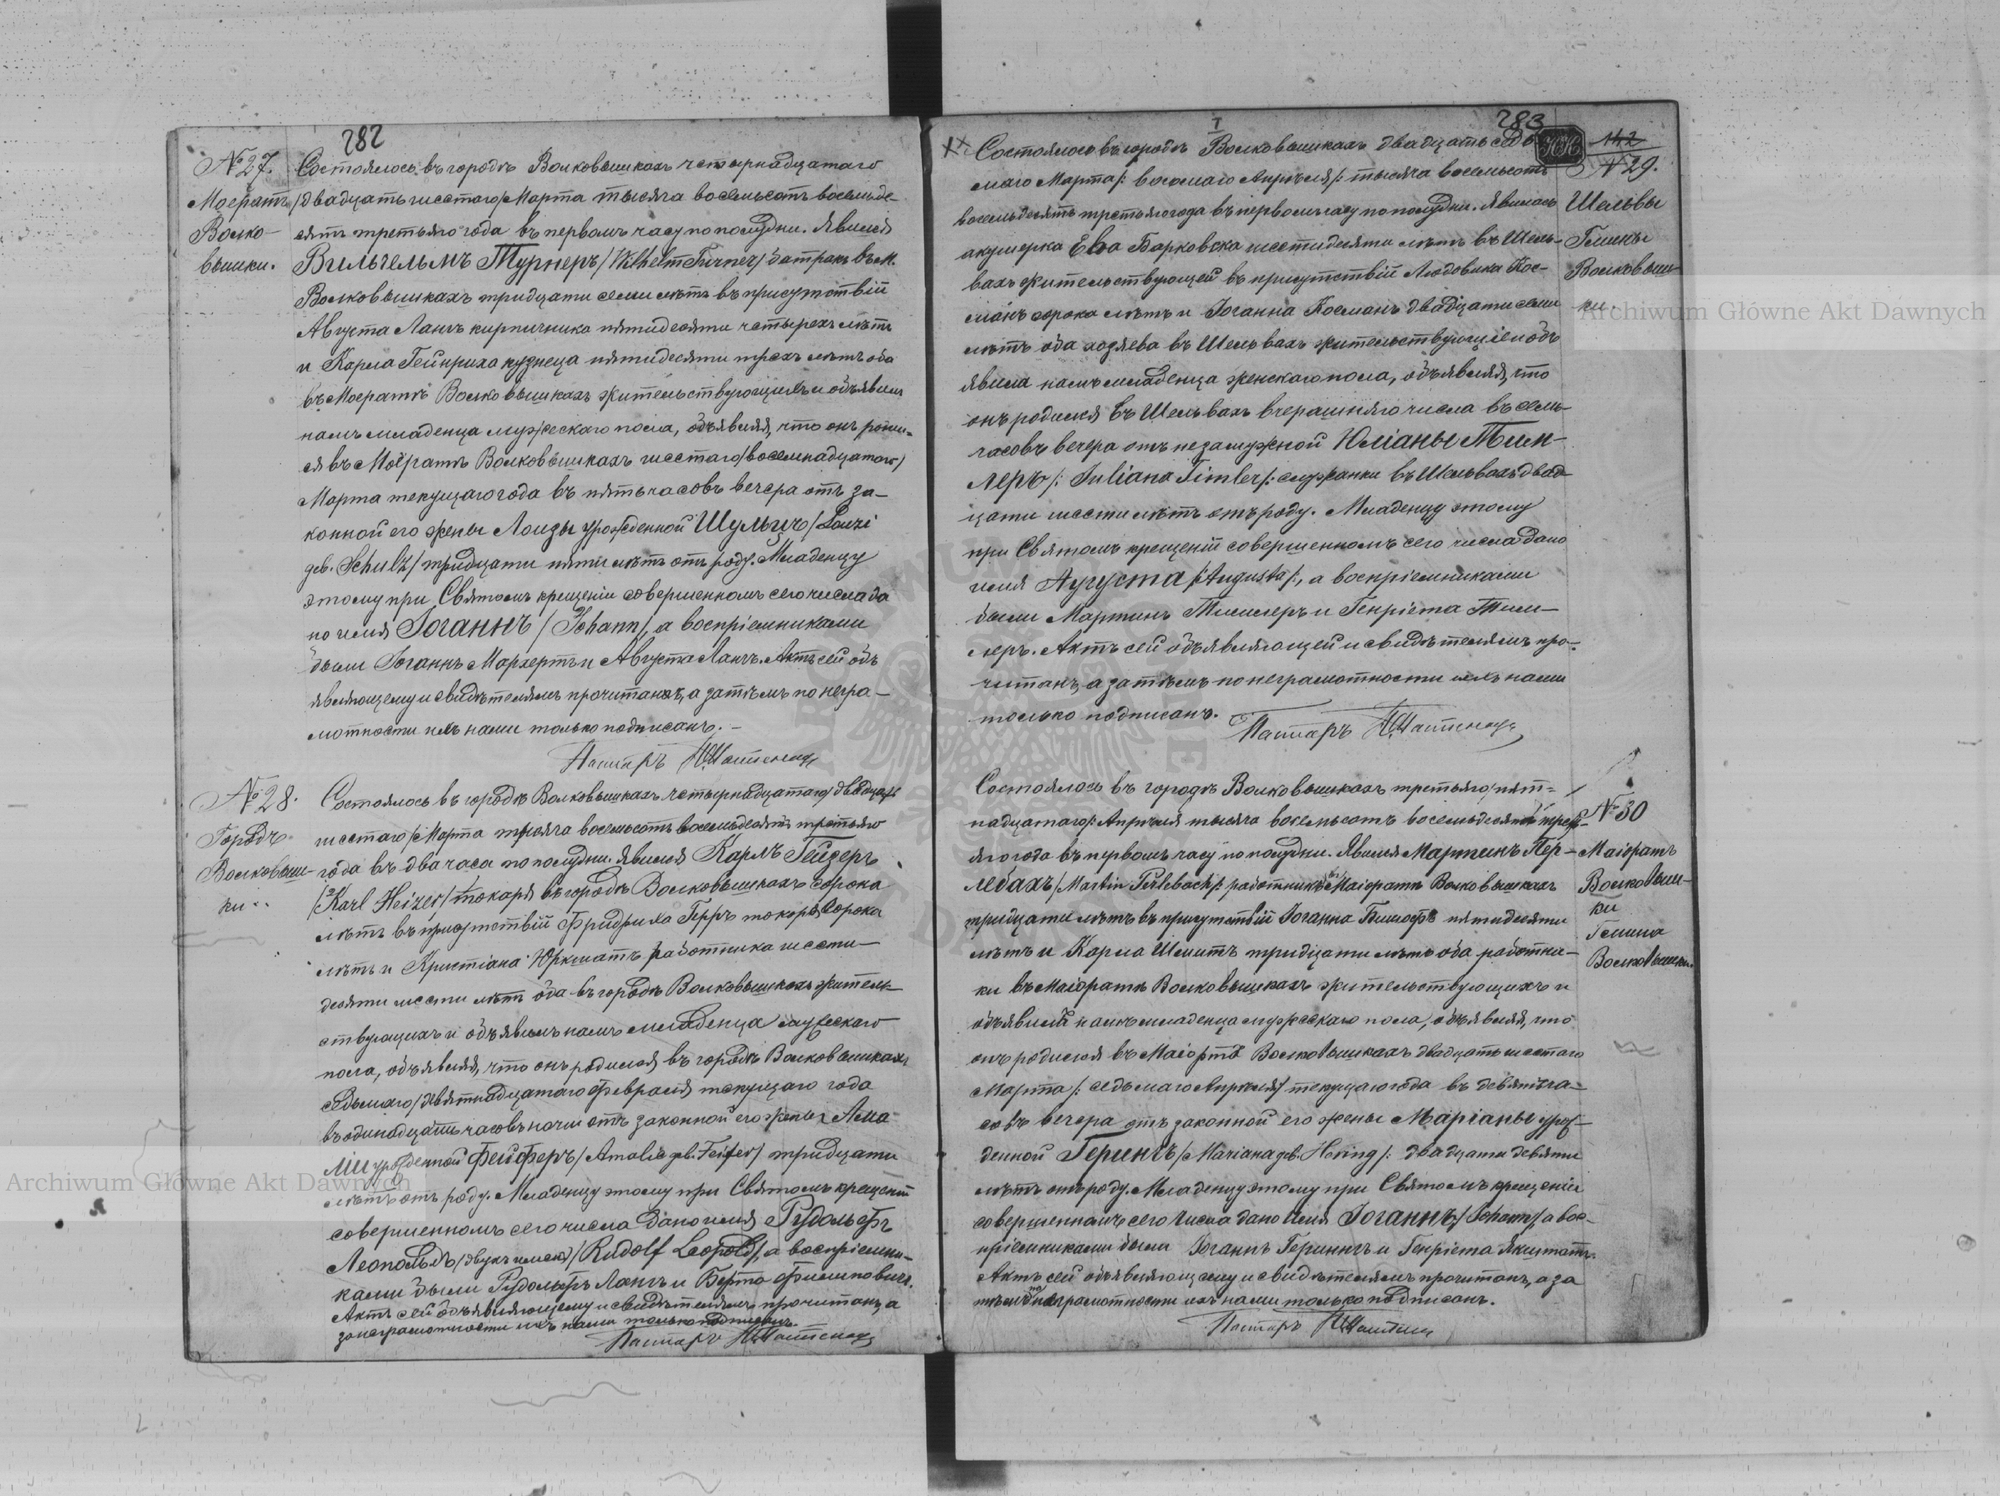 282
№ 27.
Маератъ
Волко-
вышки.
Состоялось въ городѣ Волковышкахъ четырнадцатаго
/двадцать шестаго/ Марта тысяча восемьсотъ восемьде-
сятъ третьяго года въ первомъ часу пополудни. Явился
Вильгельмъ Турнеръ /Wilhelm Turner/ батракъ въ М.
Волковышкахъ тридцати семи лѣтъ въ присутствіи
Августа Лангъ кирпичника пятидесяти четырехъ лѣтъ
и Карла Гейнриха кузнеца пятидесяти трехъ лѣтъ оба
въ Маератѣ Волковышкахъ жительствующихъ и объявилъ
намъ младенца мужескаго пола, объявляя, что онъ роди-
ся въ Маератѣ Волковышкахъ шестаго /восемнадцатаго/
Марта текущаго года въ пять часовъ вечера отъ за-
конной его жены Лоизы урожденной Шульцъ /Louzi
geb. Schulz/ тридцати пяти лѣтъ отъ роду. Младенцу
этому при Святомъ крещеніи совершенномъ сего числа да
но имя Іоганнъ /Johann/, а воспріемниками
были Іоганнъ Мархертъ и Августа Лангъ. Актъ сей объ
являющему и свидѣтелямъ прочитанъ, а затѣмъ по негра-
мотности ихъ нами только подписанъ.-
Пасторъ
№ 28.
Городъ
Волковыш-
ки..
Состоялось въ городѣ Волковышкахъ четырнадцатаго /двадцать
шестаго/ Марта тысяча восемьсотъ восемьдесятъ третьяго
года въ два часа пополудни. Явился Карлъ Гейзеръ
/Karl Heizer/ токаря въ городѣ Волковышкахъ сорока
лѣтъ въ присутствіи Фридриха токаря сорока
лѣтъ и Кристіана Юркшатъ работника шести-
десяти шести лѣтъ оба въ городѣ Волковышкахъ житель-
ствующихъ и объявилъ намъ младенца мужескаго
пола, объявляя, что онъ родился въ городѣ Волковышкахъ
седьмаго /девятнадцатаго/ Февраля текущаго года
въ одинадцать часовъ ночи отъ законной его жены Ама-
ліи урожденной Фейферъ /Amalie geb. Feifer/ тридцати
лѣтъ отъ роду. Младенцу этому при Святомъ крещеніи
совершенномъ сего числа дано имя Рудольфъ
Леопольдъ /двухъ именъ/ /Rudolf Leopold/, а воспріемни-
ками были Рудольфъ Лангъ и Берта Филиповичъ.
Актъ сей объявляющему и свидѣтелямъ прочитанъ, а
за неграмотности ихъ нами только подписанъ.
Пасторъ
283
142
№ 29.
Шельвы
Гмины
Волковыш-
ки.
Состоялось въ городѣ Волковышкахъ двадцать седь
маго Марта /: восьмаго Апрѣля :/ тысяча восемьсотъ
восемьдесятъ третьяго года въ первомъ часу пополудни. Явилась
акушерка Ева Барковска шестидесяти лѣтъ въ Шель-
вахъ жительствующей въ присутствіи Людовика Кос-
манъ сорока лѣтъ и Іоганна Косманъ двадцати семи
лѣтъ оба хозяева въ Шельвахъ жительствующіе и объ
явила намъ младенца женскаго пола, объявляя, что
онъ родился въ Шельвахъ вчерашняго числа въ семь
часовъ вечера отъ незамужной Юліаны Тим-
леръ /: Juliana Timler :/ служанки въ Шельвахъ двад
цати шести лѣтъ отъ роду. Младенцу этому
при Святомъ крещеніи совершенномъ сего числа дано
имя Аугуста /:Augusta:/, а воспріемниками
были Мартинъ Тимлеръ и Генріета Тим-
леръ. Актъ сей объявляющей и свидѣтелямъ про-
читанъ, а затѣмъ по неграмотности ихъ нами
только подписанъ.
Пасторъ
№ 30
Маіоратъ
Волковыш-
ки
Гмина
Волковышки.
Состоялось въ городѣ Волковышкахъ третьяго /:пят-
надцатаго:/ Апрѣля тысяча восемьсотъ восемьдесятъ треть-
яго года въ первомъ часу пополудни. Явился Мартинъ Пер-
лебахъ /Martin Perlebach/: работникъ въ Маіоратѣ Волковышкахъ
тридцати лѣтъ въ присутствіи Іоганна Бишофъ пятидесяти
лѣтъ и Карла Шмитъ тридцати лѣтъ оба работни-
ки въ Маіоратѣ Волковышкахъ жительствующихъ и
объявилъ намъ младенца мужескаго пола, объявляя, что
онъ родился въ Маіоратѣ Волковышкахъ двадцать шестаго
Марта /: седьмаго Апрѣля/ текущаго года въ девять ча-
совъ вечера отъ законной его жены Маріаны урож-
денной Герингъ /Mariana geb. Hering/: двадцати девяти
лѣтъ отъ роду. Младенцу этому при Святомъ крещеніи
совершенномъ сего числа дано имя Іоганнъ /Johann/ а вос-
пріемниками были Іоганнъ Герингъ и Генріета Якштатъ.
Актъ сей объявляющему и свидѣтелямъ прочитанъ, а за
тѣмъ по неграмотности ихъ нами только подписанъ.
Пасторъ
Archiwum Główne Akt Dawnych
Archiwum Główne Akt Dawnych